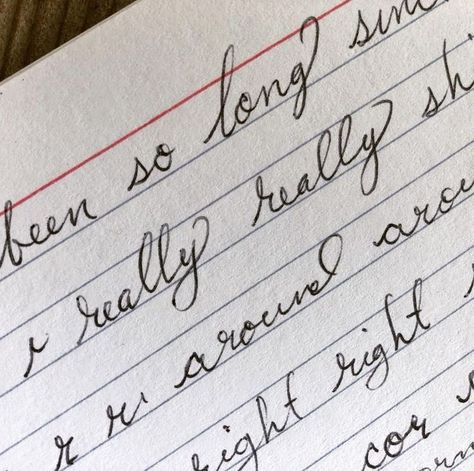 been so long
i really really
r r around
right right
cor